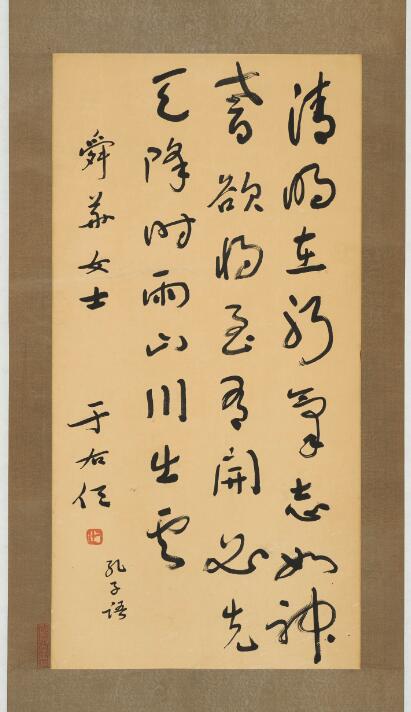 清明在躬氣志如神
耆欲將至有開必先
天降時雨山川出雲
孔子語
舜華女士
于右任